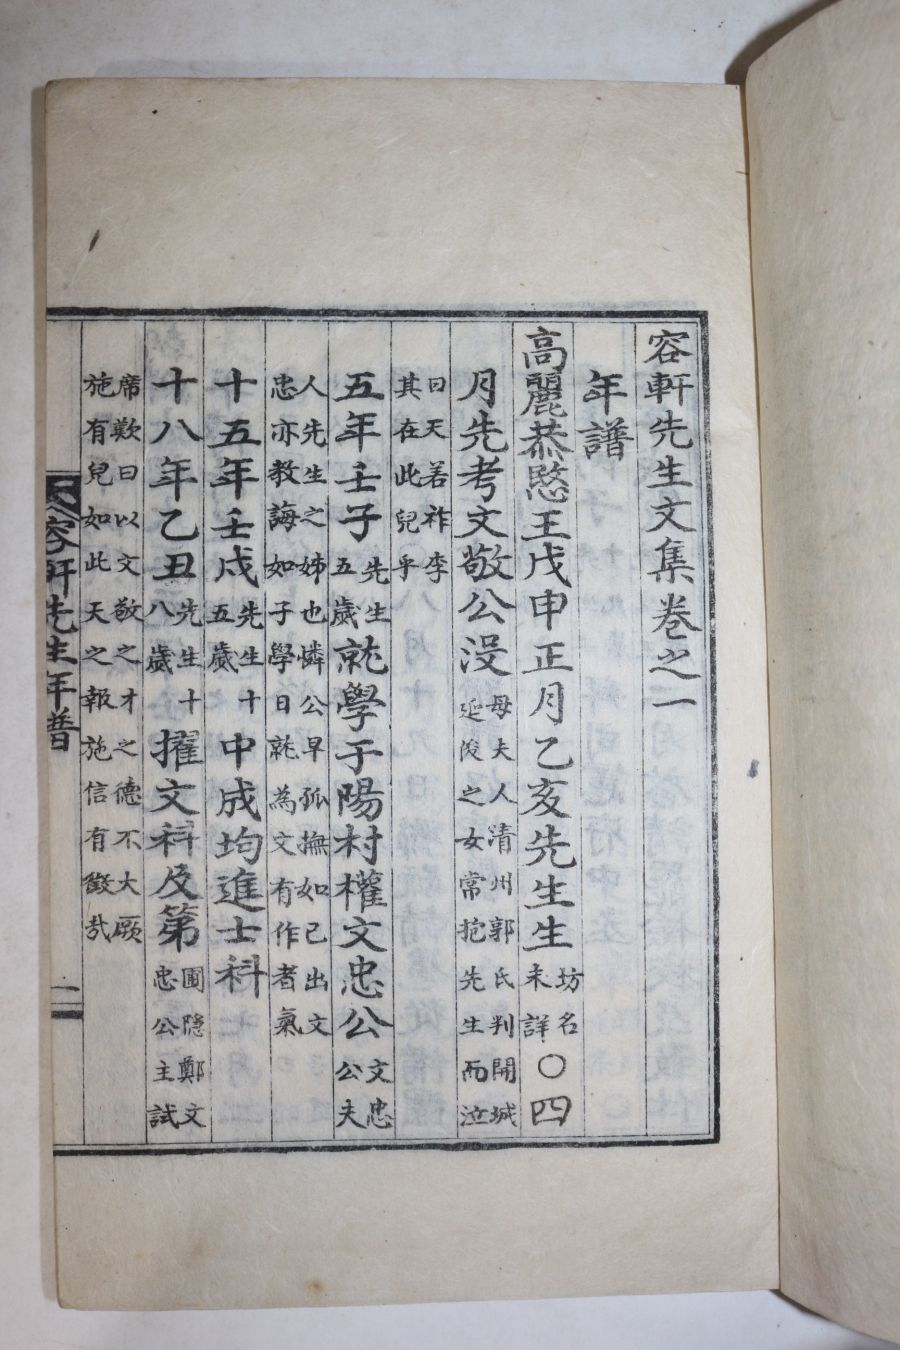 容軒先生文集卷之一
年譜
高麗恭愍王戊申正月乙亥先生生坊名未詳○四
月先考文敬公沒母夫人清州郭氏判開城延俊之女常抱先生而泣
曰天若祚李其在此兒乎
五年壬子先生五歲就學于陽村權文忠公文忠公公夫
人先生之姊也憐公早孤撫如己出文忠亦教誨如子學日就為文有作者氣
十五年壬戌先生十五歲中成均進士科
十八年乙丑先生十八歲擢文科及第圃隱鄭文忠公主試
席歎曰以文敬之才之德不大厥施有兒如此天之報施信有徵哉
容軒先生年譜
一